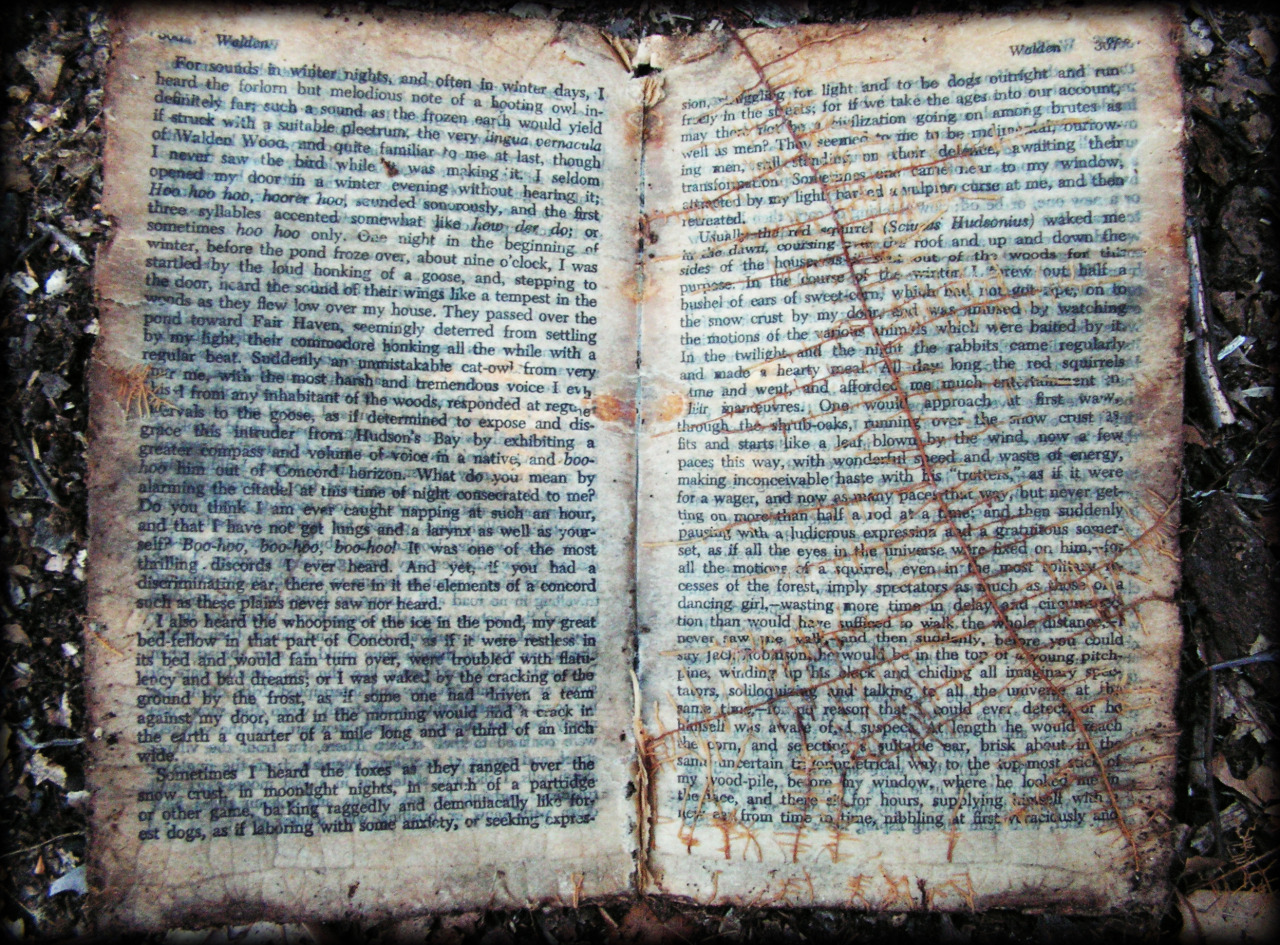 Walden
For sounds in winter nights, and often in winter days, I
heard the forlorn but melodious note of a hooting owl in-
definitely far; such a sound as the frozen earth would yield
if struck with a suitable plectrum, the very lingua vernacula
of Walden Wood, and quite familiar to me at last, though
I never saw the bird while was making it. I seldom
opened my door in a winter evening without hearing it;
Hoo hoo hoo, hoorer hoo, sounded sonorously, and the first
three syllables accented somewhat like how der do; or
sometimes hoo hoo only. One night in the beginning of
winter, before the pond froze over, about nine o'clock, I was
startled by the loud honking of a goose, and, stepping to
the door, heard the sound of their wings like a tempest in the
woods as they flew low over my house. They passed over the
pond toward Fair Haven, seemingly deterred from settling
by my light, their commodore honking all the while with a
regular beat. Suddenly an unmistakable cat-owl from very
near me, with the most harsh and tremendous voice I
I from any inhabitant of the woods, responded at
intervals to the goose, as if determined to expose and dis-
grace this intruder from Hudson's Bay by exhibiting a
greater compass and volume of voice in a native, and boo-
hoo him out of Concord horizon. What do you mean by
alarming the citadel at this time of night consecrated to me?
Do you think I am ever caught napping at such an hour,
and that I have not got lungs and a larynx as well as your-
self? Boo-hoo, boo-hoo, boo-hoo! It was one of the most
thrilling discords I ever heard. And yet, if you had a
discriminating ear, there were in it the elements of a concord
such as these plains never saw nor heard.
I also heard the whooping of the ice in the pond, my great
bed-fellow in that part of Concord, as if it were restless in
its bed and would fain turn over, were troubled with flatu-
lency and bad dreams; or I was waked by the cracking of the
ground by the frost, as if some one had driven a team
against my door, and in the morning would find a crack in
the earth a quarter of a mile long and a third of an inch
wide.
Sometimes I heard the foxes as they ranged over the
snow crust, in moonlight nights, in search of a partridge
or other game, barking raggedly and demoniacally like for-
est dogs, as if laboring with some anxiety, or seeking expres-
Walden
sion, struggling for light and to be dogs outright and run
freely in the streets; for if we take the ages into our account,
may there not be a civilization going on among brutes as
well as men? They seemed to me to be rudimental, burrow-
ing men, still standing on their defence, awaiting their
transformation. Sometimes one came near to my window,
attracted by my light, barked a vulpine curse at me, and then
retreated.
Usually the red squirrel (Sciurus Hudsonius) waked me
in the dawn, coursing over the roof and up and down the
sides of the house, as if sent out of the woods for this
purpose. In the course of the winter I threw out half a
bushel of ears of sweet-corn, which had not got ripe, on to
the snow crust by my door, and was amused by watching
the motions of the various animals which were baited by it.
In the twilight and the night the rabbits came regularly
and made a hearty meal. All day long the red squirrels
came and went, and afforded me much entertainment in
their manœuvres. One would approach at first warily
through the shrub-oaks, running over the snow crust as
fits and starts like a leaf blown by the wind, now a few
paces this way, with wonderful speed and waste of energy,
making inconceivable haste with his "trotters," as if it were
for a wager, and now as many paces that way, but never get-
ting on more than half a rod at a time; and then suddenly
pausing with a ludicrous expression and a gratuitous somer-
set, as if all the eyes in the universe were fixed on him,—for
all the motions of a squirrel, even in the most solitary re-
cesses of the forest, imply spectators as much as those of a
dancing girl,—wasting more time in delay and circumspec-
tion than would have sufficed to walk the whole distance,—I
never saw one walk,—and then suddenly, before you could
say Jack Robinson, he would be in the top of a young pitch-
pine, winding up his clock and chiding all imaginary spec-
tators, soliloquizing and talking to all the universe at the
same time,—for no reason that I could ever detect, or he
himself was aware of, I suspect. At length he would reach
the corn, and selecting a suitable ear, brisk about in the
same uncertain trigonometrical way to the top-most stick of
my wood-pile, before my window, where he looked me in
the face, and there sit for hours, supplying himself with a
new ear from time to time, nibbling at first voraciously and